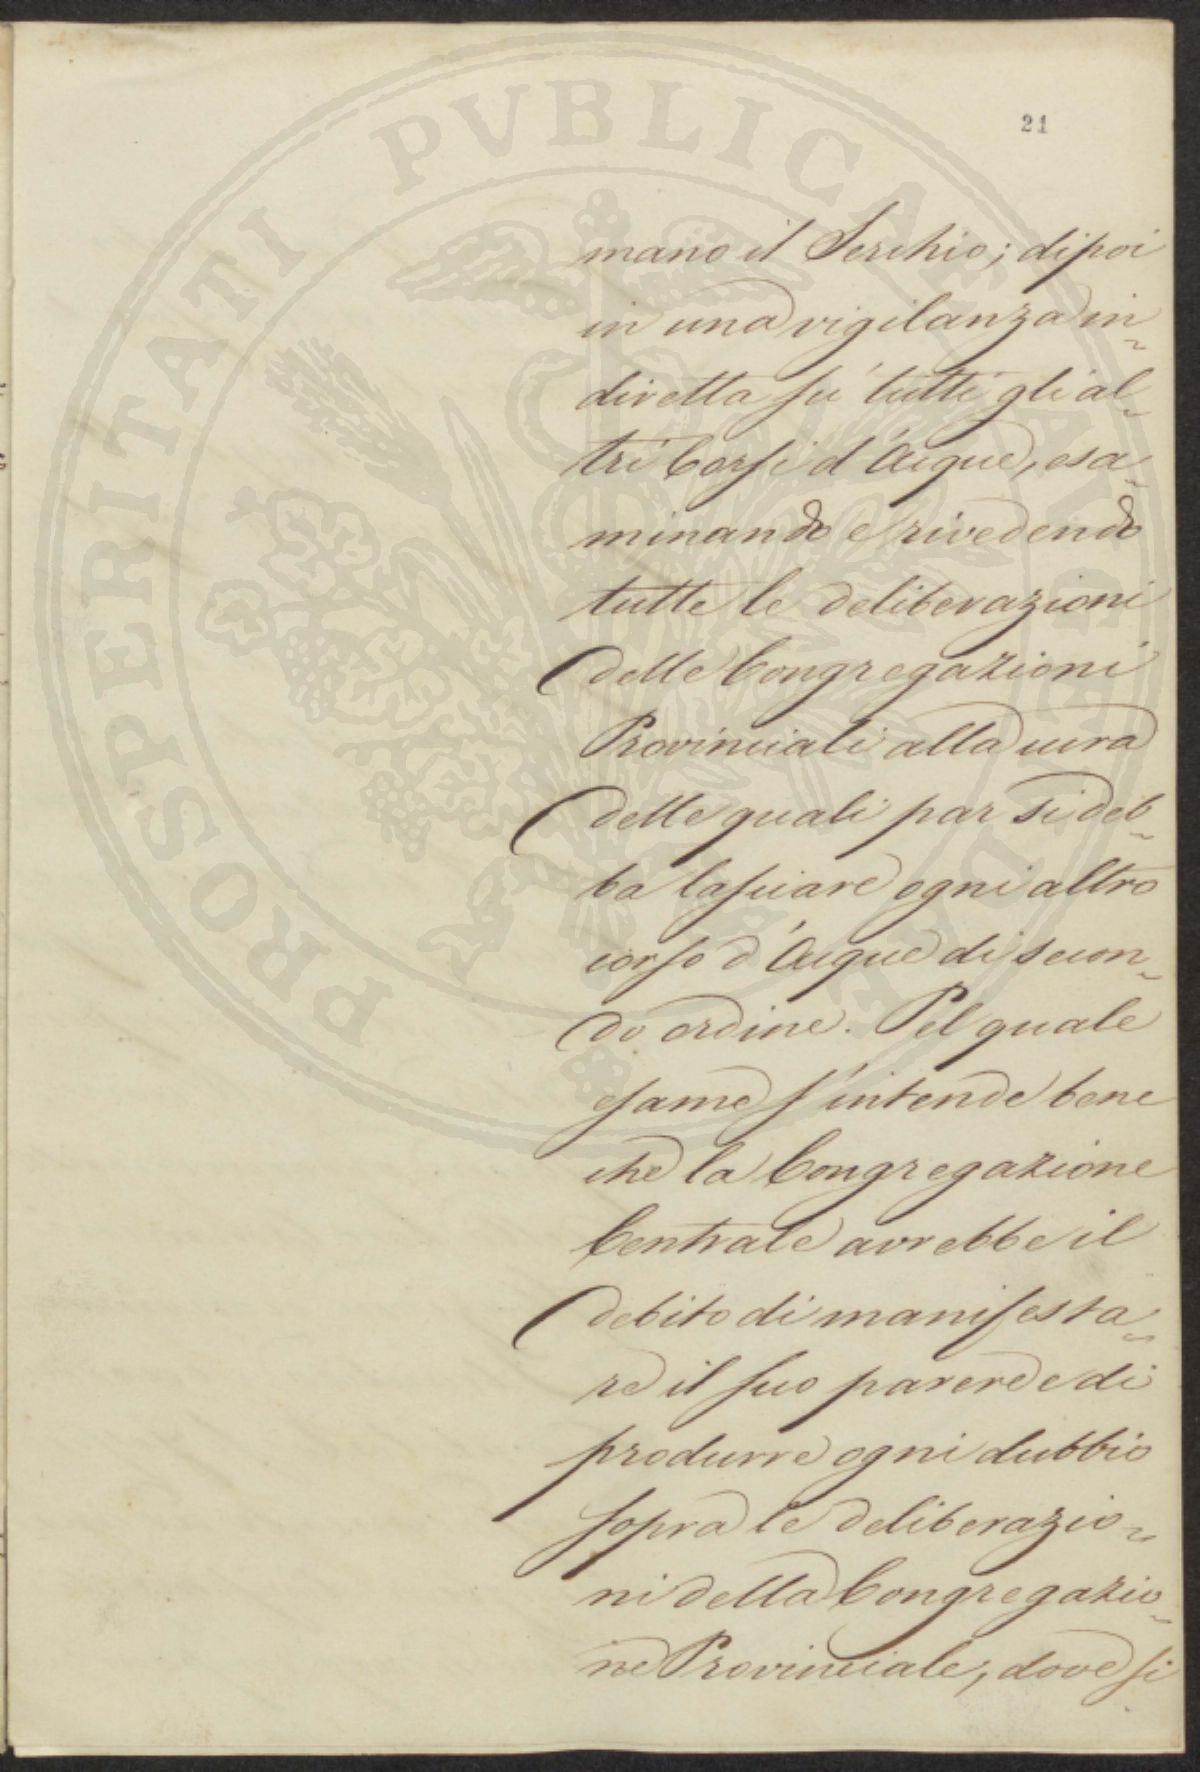 21
mano il Serchio; dipoi
in una vigilanza in-
diretta su' tutti gli al-
tri Corsi d'Acque, esa-
minando e rivedendo
tutte le deliberazioni
delle Congregazioni
Provinciali alla cura
delle quali par si deb-
ba lasciare ogni altro
corso d'Acque di secon-
do ordine. Pel quale
esame s'intende bene
che la Congregazione
Centrale avrebbe il
debito di manifesta-
re il suo parere e di
produrre ogni dubbio
sopra le deliberazio-
ni della Congregazio-
ne Provinciale, dove si
PROSPERITATI PVBLICAE AVGENDAE